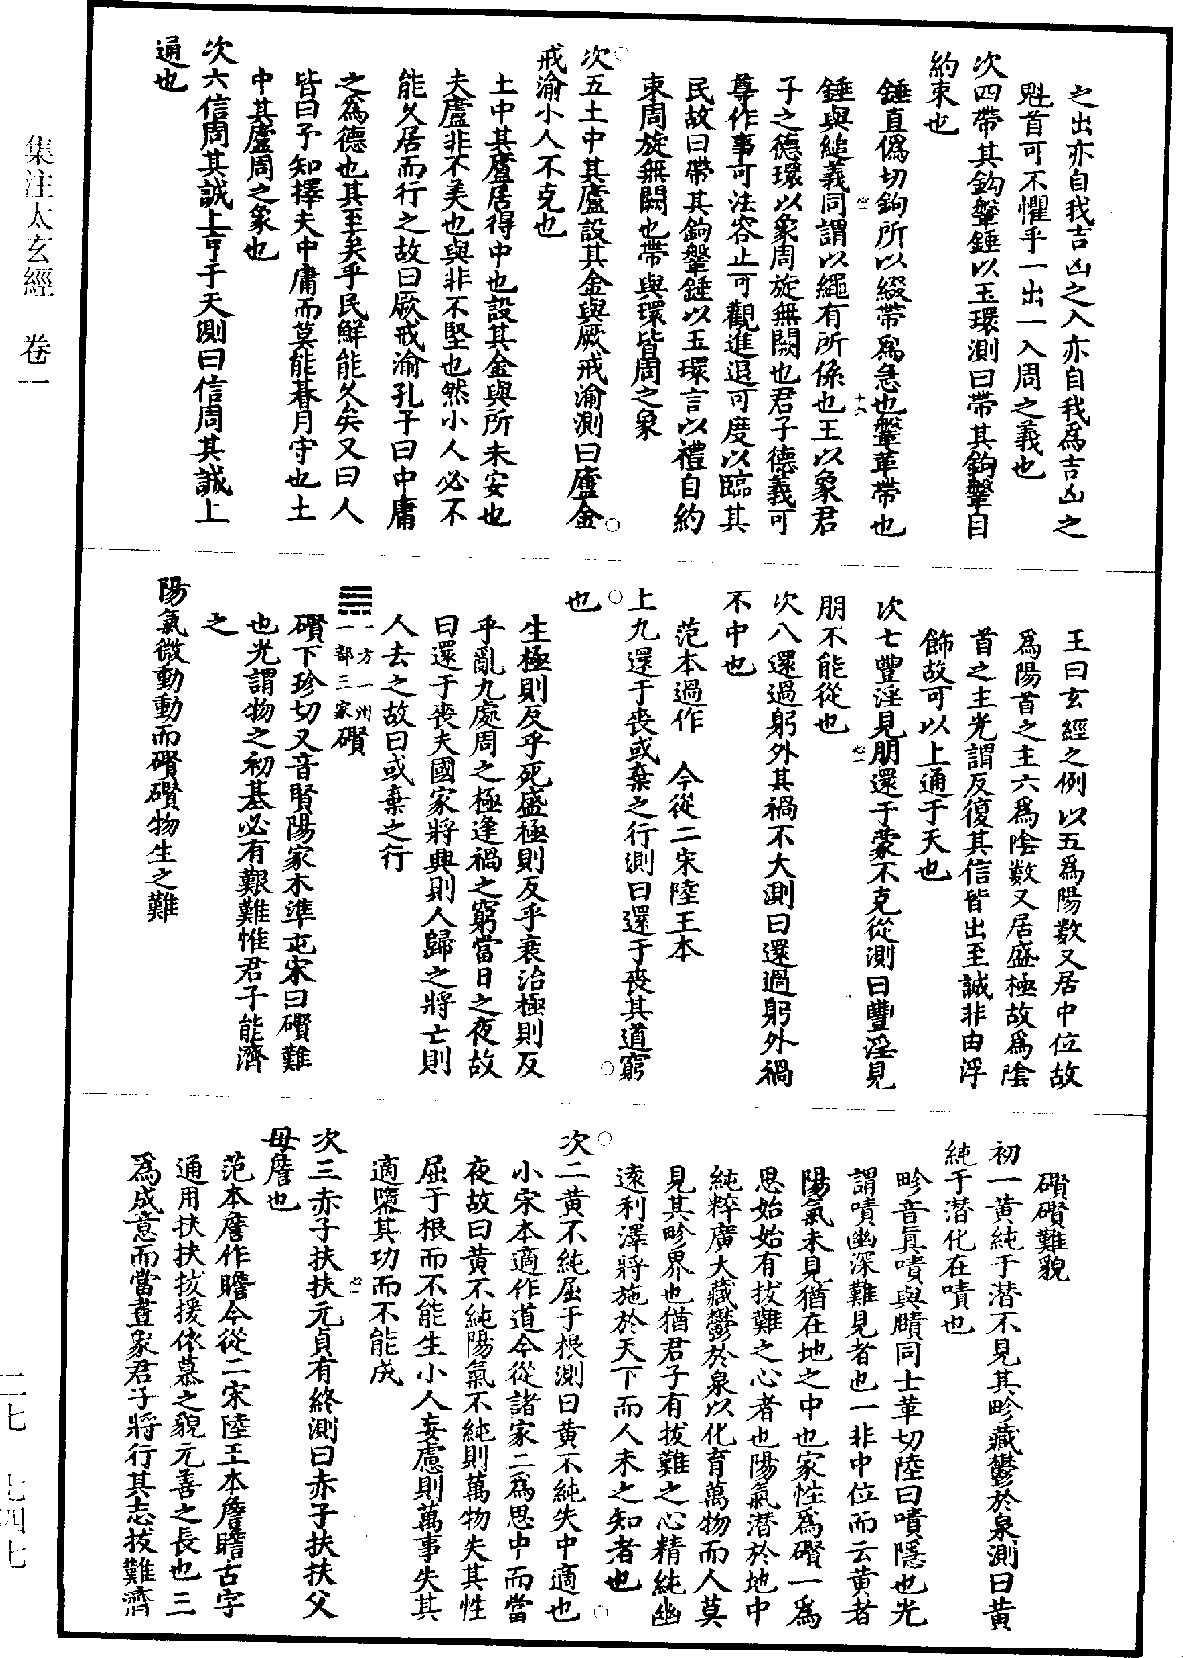 之出亦自我吉凶之入亦自我為吉凶之
魁首可不懼乎一出一入周之義也
次四帶其鈎鞶錘以玉環測曰帶其鈎鞶自
約束也
錘直偽切鈎所以綴帶為急也鞶革帶也
錘與縋義同謂以繩有所係也王以象君
子之德環以象周旋無闕也君子德義可
尊作事可法容止可觀進退可度以臨其
民故曰帶其鈎鞶錘以玉環言以禮自約
束周旋無闕也帶與環皆周之象
次五土中其廬設其金與厥戒渝測曰廬金
戒渝小人不克也
土中其廬居得中也設其金與所未安也
夫廬非不美也與非不堅也然小人必不
能久居而行之故曰厥戒渝孔子曰中庸
之為德也其至矣乎民鮮能久矣又曰人
皆曰予知擇夫中庸而莫能朞月守也土
中其廬周之象也
次六信周其誠上亨于天測曰信周其誠上
通也
王曰玄經之例以五為陽數又居中位故
為陽首之主六為陰數又居盛極故為陰
首之主光謂反復其信皆出至誠非由浮
飾故可以上通于天也
次七豐淫見朋還于蒙不克從測曰豐淫見
朋不能從也
次八還過躬外其禍不大測曰還過躬外禍
不中也
范本過作　今從二宋陸王本
上九還于喪或棄之行測曰還于喪其道窮
也
生極則反乎死盛極則反乎衰治極則反
乎亂九處周之極逢禍之窮當日之夜故
曰還于喪夫國家將興則人歸之將亡則
人去之故曰或棄之行
一方一州
一部三家
礥
礥下珍切又音賢陽家木準屯宋曰礥難
也光謂物之初基必有艱難惟君子能濟
之
陽氣微動動而礥礥物生之難
礥礥難貌
初一黄純于潛不見其畛藏鬱於泉測曰黄
純于潛化在嘖也
畛音真嘖與賾同士革切陸曰嘖隱也光
謂嘖幽深難見者也一非中位而云黄者
陽氣未見猶在地之中也家性為礥一為
思始始有拔難之心者也陽氣潛於地中
純粹廣大藏鬱於泉以化育萬物而人莫
見其畛界也猶君子有拔難之心精純幽
遠利澤將施於天下而人未之知者也
次二黄不純屈于根測曰黄不純失中適也
小宋本適作道今從諸家二為思中而當
夜故曰黄不純陽氣不純則萬物失其性
屈于根而不能生小人妄慮則萬事失其
適隳其功而不能成
次三赤子扶扶元貞有終測曰赤子扶扶父
母詹也
范本詹作瞻今從二宋陸王本詹瞻古字
通用扶扶扳援依慕之貌元善之長也三
為成意而當晝家君子將行其志拔難濟
集注太玄經　卷一
二七　七四七